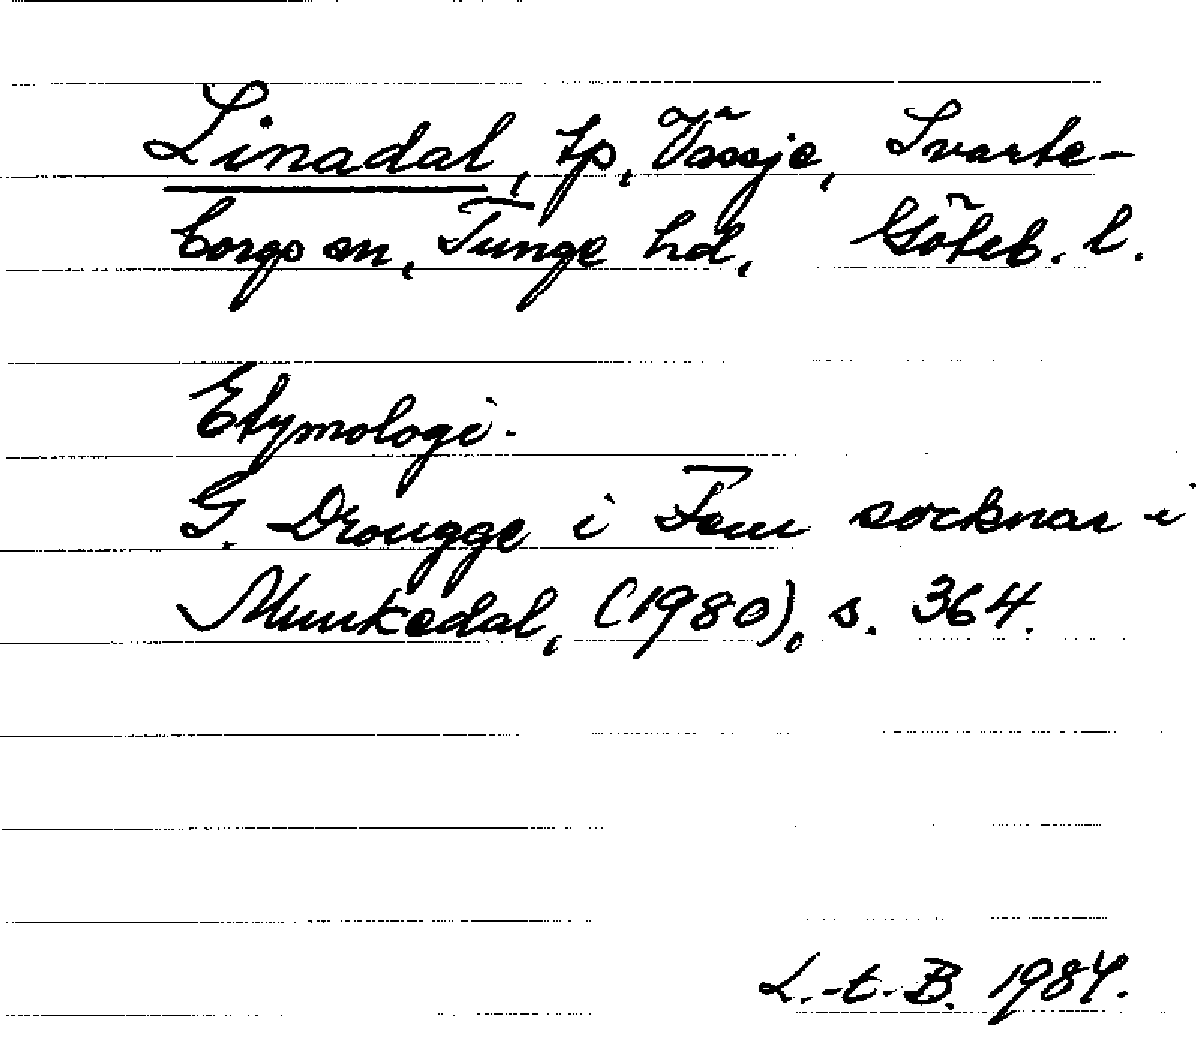 Linadal, tp, Vässje, Svarte-
borgs sn, Tunge hd, Göteb. l.
Etymologi.
G. Drougge i Fem socknar i
Munkedal, (1980), s. 364.
L.-t.-B. 1984.